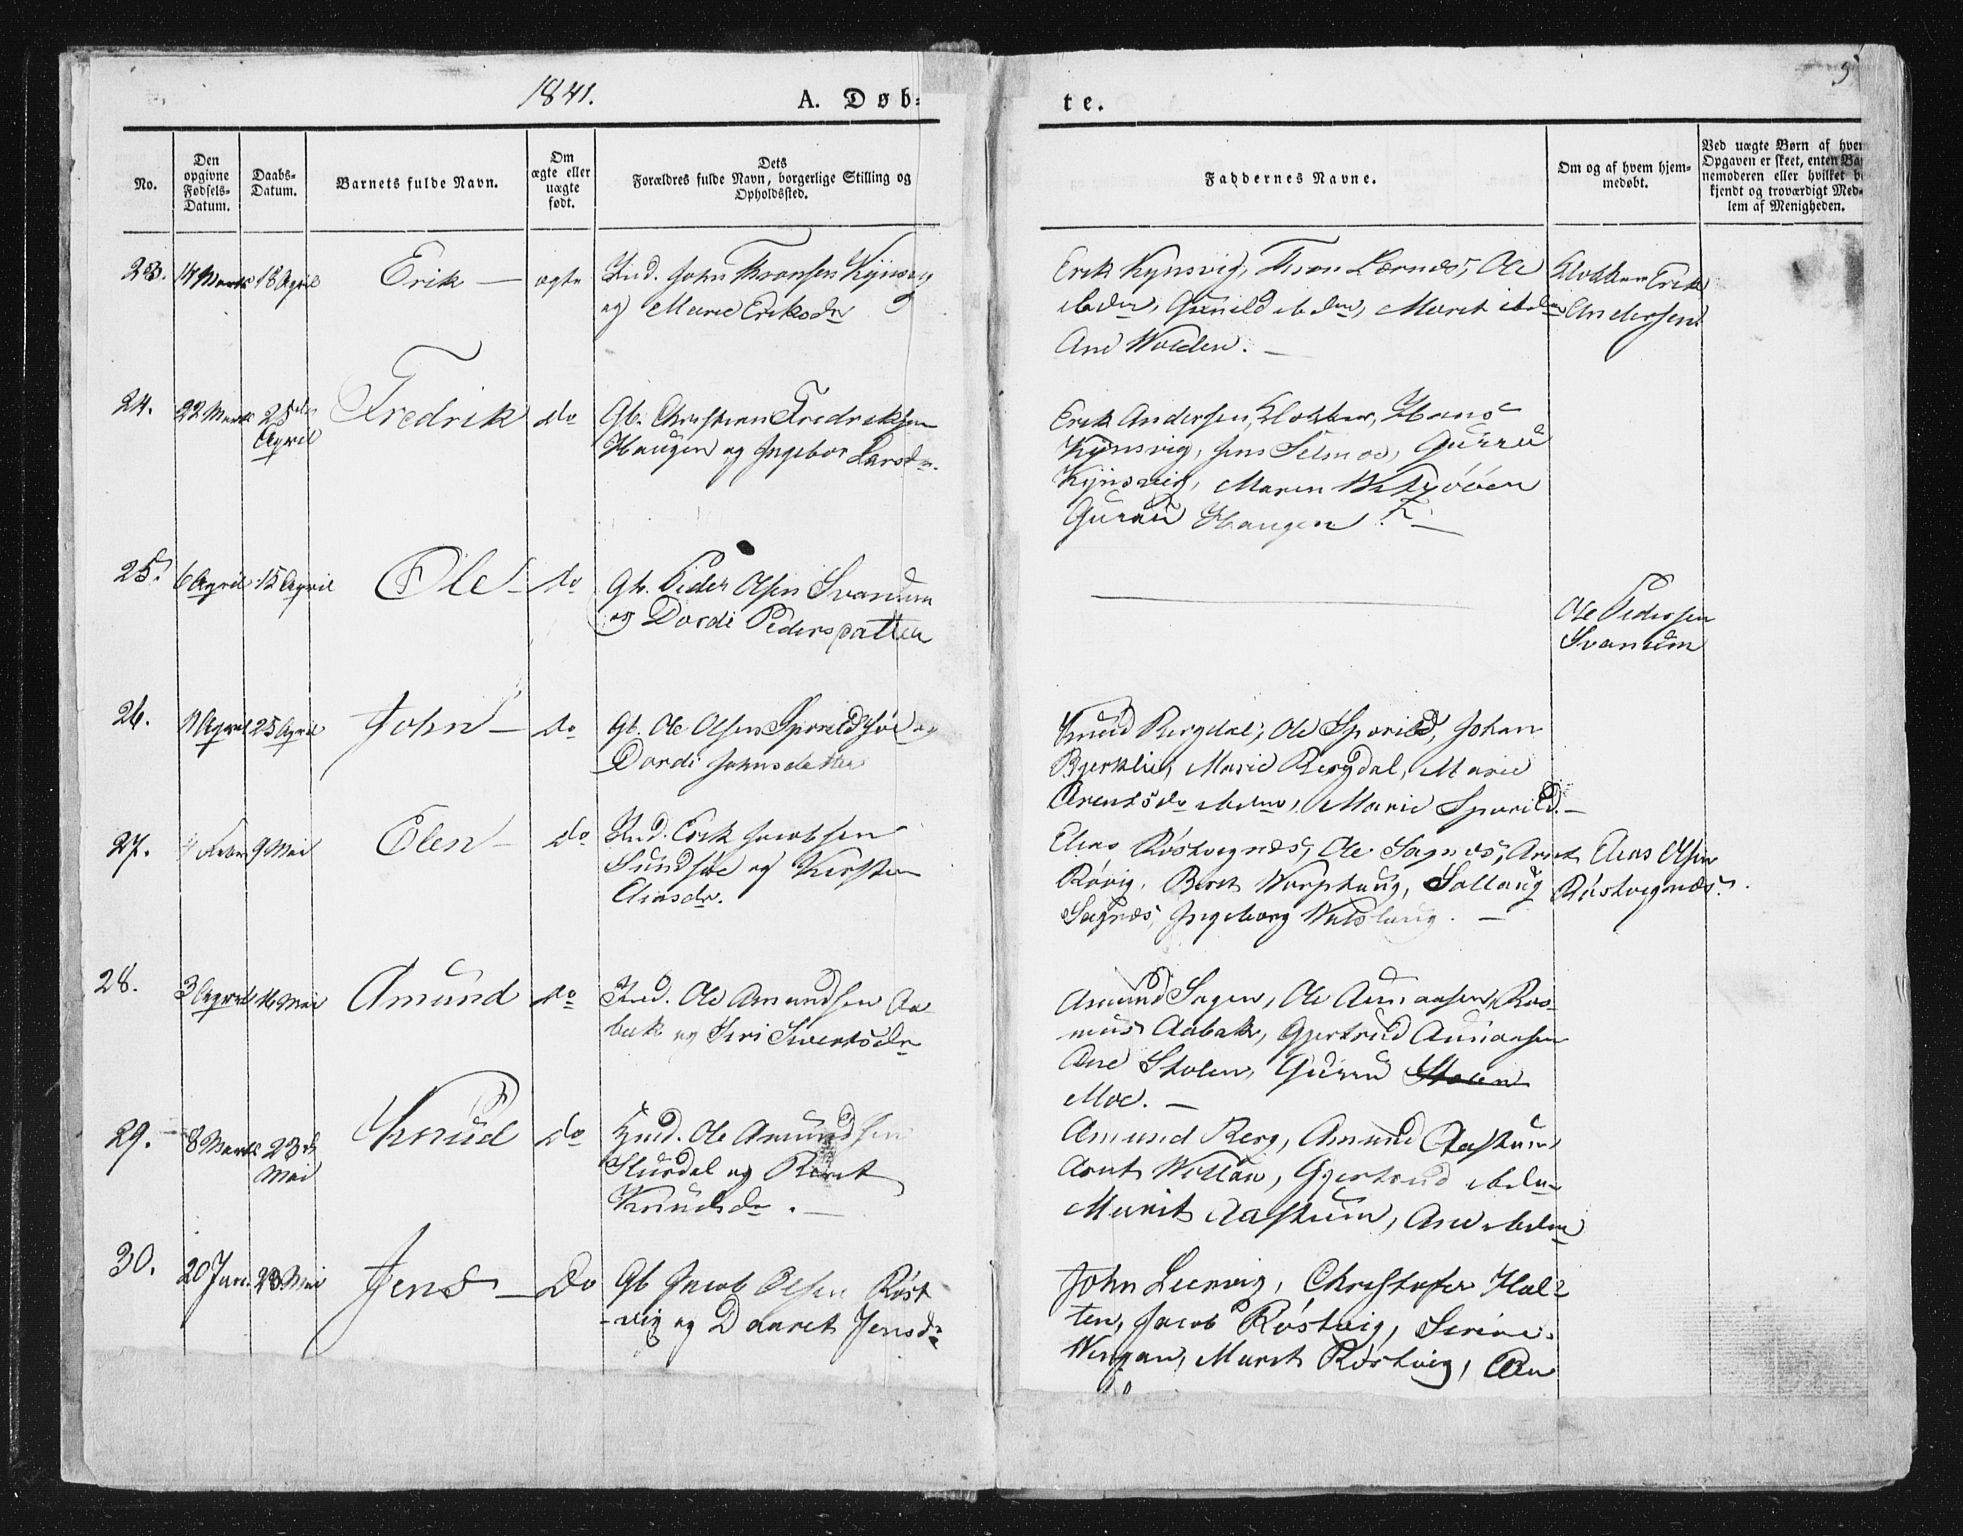 1841.
A. Døb-
te.
5
No.
Den opgivne Fødsels-Datum.
Daabs-Datum.
Barnets fulde Navn.
Om ægte eller uægte født.
Dets Forældres fulde Navn, borgerlige Stilling og Opholdssted.
Faddernes Navne.
Om og af hvem hjemmedøbt.
Ved uægte Børn af hvem
Opgaven er skeet, enten Ba
nemoderen eller hvilket b
kjendt og troværdigt Med-
lem af Menigheden.
23. 14 Marts 18 April Erik — ægte
Ind. John Thronsen Kjønsvig
og Marie Eriksdr
Erik Kynsvig, Tron Lernæs, Ole
ibdm, Gunild ibdm, Maret ibdm
Ane Wolden. —
Klokker Erik
Andersen
24. 22 Marts 25de April Fredrik do
Gb. Christian Fredriksen
Haugen og Ingebor Larsdr.
Erik Andersen, Klokker, Hans
Kynsvig, Jens Selnæs, Guru
Kynsvig, Maren
Guru Haugen. —
25. 6 April 15 April Ole — do
Gb. Peder Olsen Svanum
og Dordi Pedersdatter
Ole Pedersen
Svanum
26. 11 April 25 April John — do
Gb. Ole Olsen Sporildsøe og
Dordi Johnsdatter
Knud Bergdal, Ole Sporild, Johan
Bjerklie, Marie Bergdal, Marie
Arentsdr ibdm, Marie Sporild. —
27. Febr 9 Mai Elen — do
Ind. Erik Jacobsen
Sundsøe og Kirsten
Eliasdr.
Elias Røstvegnæs, Ole Sagnæs, Arnt
Røvig, Beret Worphaug, Sallaug
Sagnæs, Ingeborg Watslaug. —
Elias Olsen
Røstvegnæs.
28. 3 April 16 Mai Amund do
Ind. Ole Amundsen Aa
bak og Siri Sivertsdr
Amund Sagen, Ole Aunaasen, Ras
mus Aabak, Gjertrud Aunaasen
Ane Stolen, Guru Stolen
Moe. —
29. 8 Marts 23de Mai Knud do
Hmd. Ole Amundsen
Slurdal og Beret
Knudsdr. —
Amund Berg, Amund Aaskum
Arnt Vollan, Gjertrud ibdm
Marit Aaskum, Ane ibdm
30. 20 Jan. 23 Mai Jens — Do
Gb Jacob Olsen Røst
vig og Daaret Jensdr
John Leervig, Christofer Hal-
ten, Jacob Røstvig, Serine
Wingan, Maret Røstvig, Ane